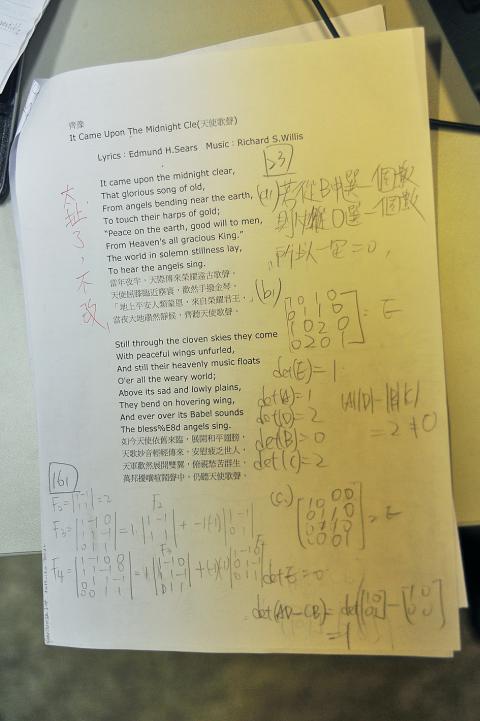 齊豫
It Came Upon The Midnight Cle(天使歌聲)
Lyrics：Edmund H.Sears Music：Richard S.Willis
It came upon the midnight clear,
That glorious song of old,
From angels bending near the earth,
To touch their harps of gold;
"Peace on the earth, good will to men,
From Heaven's all gracious King."
The world in solemn stillness lay,
To hear the angels sing.
當年夜半，天際傳來榮耀遠古歌聲，
天使屈膝臨近塵寰，歡然手撥金琴，
「地上平安人類蒙恩，來自榮耀君王」
當夜大地肅然靜候，齊聽天使歌聲。
Still through the cloven skies they come
With peaceful wings unfurled,
And still their heavenly music floats
O'er all the weary world;
Above its sad and lowly plains,
They bend on hovering wing,
And ever over its Babel sounds
The bless%E8d angels sing.
如今天使依舊來臨，展開和平翅膀，
天歌妙音輕輕傳來，安慰疲乏世人，
天軍歡然展開雙翼，俯視愁苦群生，
萬邦擾嚷喧鬧聲中，仍聽天使歌聲。
太扯了，不改
23
(a) 若從B中選一個數
則必從0選一個數
所以一定=0,
(b)
1 0 1 0
0 2 0 1
= E
det(E)=1
det(A)=1
det(D)=2
det(B)=0
det(C)=2
|A||D|-|B||C|
=2≠0
(c)
= E
det E=0
det(AD-CB)=det
=1
16
F₂= =2
F₃= =1· + -1(-1)
F₄= =1· +(-1)(-1)
F₂
F₃